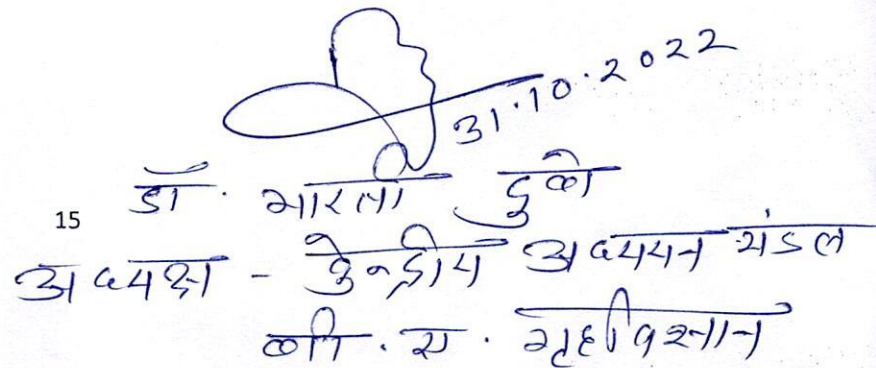 31.10.2022
डॉ. भारती दुबे
15
अध्यक्ष - केन्द्रीय अध्ययन मंडल
बी. ए. गृहविज्ञान